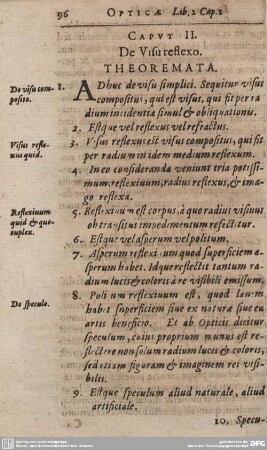 96 OPTICÆ Lib. 2 Cap. 2
CAPVT II.
De Visu reflexo.
THEOREMATA.
De visu com-
posito.
1. ADhuc de visu simplici. Sequitur visus
compositus, qui est visus, qui fit per ra
dium incidentia simul & obliquationis.
2. Estque vel reflexus vel refractus.
Visus refle-
xus quid.
3. Visus reflexus est visus compositus, qui fit
per radium in idem medium reflexum.
4. In eo consideranda veniunt tria potissi-
mum: reflexiuum, radius reflexus, & ima-
go reflexa.
Reflexiuum
quid & quo-
tuplex.
5. Reflexiuum est corpus, à quo radius visiuus
ob transitus impedimentum reflectitur.
6. Estque vel asperum vel politum.
7. Asperum reflexiuum quod superficiem a
sperum habet. Idque reflectit tantum ra-
dium lucis & coloris à re visibili emissum.
De speculo.
8. Politum reflexiuum est, quod laeuam
habet superficiem siue ex natura siue ex
artis beneficio. Et ab Opticis dicitur
speculum, cuius proprium munus est re-
flectere non solùm radium lucis & coloris,
sed etiam figuram & imaginem rei visi-
bilis.
9. Estque speculum aliud naturale, aliud
artificiale.
10. Specu-